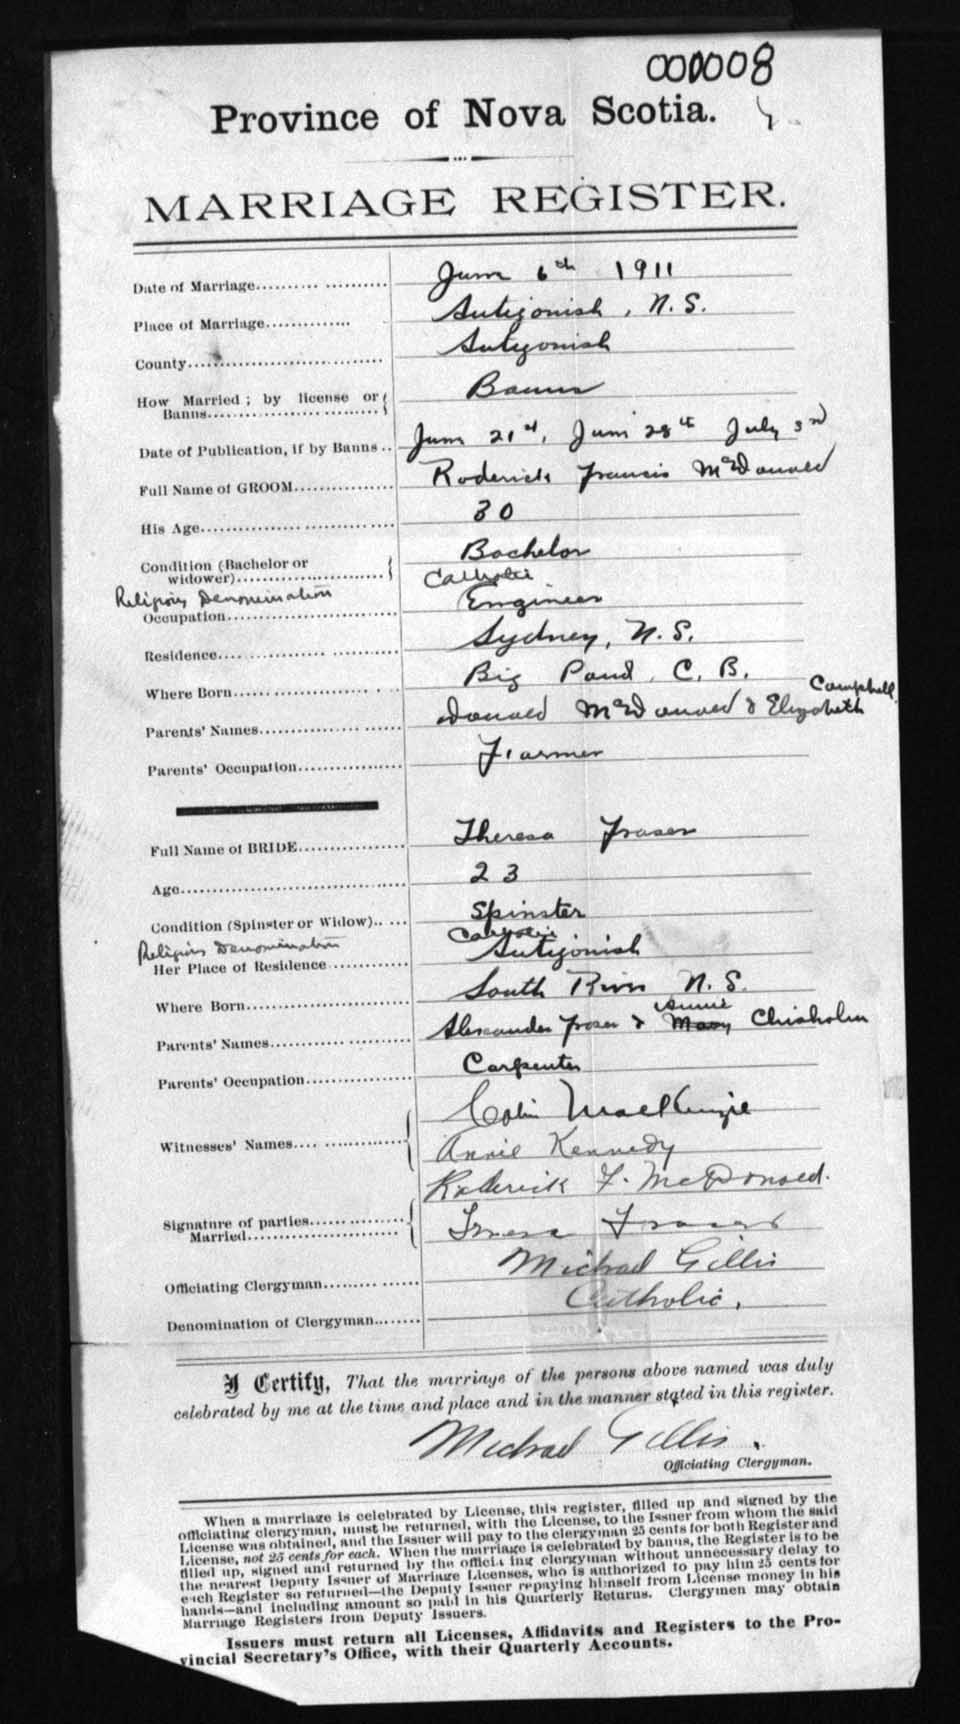 000008
Province of Nova Scotia.
MARRIAGE REGISTER.
Date of Marriage.......... June 6th 1911
Place of Marriage.............. Antigonish, N.S.
County.............................. Antigonish
How Married; by license or Banns.............................. Banns
Date of Publication, if by Banns.. June 21st, June 28th July 3rd
Full Name of GROOM................ Roderick Francis McDonald
His Age.............................. 30
Condition (Bachelor or widower).............................. Bachelor
Religious Denomination Catholic
Occupation.............................. Engineer
Residence.............................. Sydney, N.S.
Where Born.............................. Big Pond, C.B.
Parents' Names.................... Donald McDonald & Elizabeth Campbell
Parents' Occupation.................. Farmer
Full Name of BRIDE.................. Theresa Fraser
Age.............................. 23
Condition (Spinster or Widow)...... Spinster
Religious Denomination Catholic
Her Place of Residence............ Antigonish
Where Born.............................. South River N.S.
Parents' Names.................... Alexander Fraser & Mary Annie Chisholm
Parents' Occupation.................. Carpenter
Witnesses' Names.................... Colin MacKenzie
Annie Kennedy
Signature of parties Married.............................. Roderick F. McDonald.
Fraser
Officiating Clergyman.............. Michael Gillis
Denomination of Clergyman........ Catholic.
I Certify, That the marriage of the persons above named was duly
celebrated by me at the time and place and in the manner stated in this register.
Michael Gillis.
Officiating Clergyman.
When a marriage is celebrated by License, this register, filled up and signed by the
officiating clergyman, must be returned, with the License, to the Issuer from whom the said
License was obtained, and the Issuer will pay to the clergyman 25 cents for both Register and
License, not 25 cents for each. When the marriage is celebrated by banns, the Register is to be
filled up, signed and returned by the officiating clergyman without unnecessary delay to
the nearest Deputy Issuer of Marriage Licenses, who is authorized to pay him 25 cents for
each Register so returned—the Deputy Issuer repaying himself from License money in his
hands—and including amount so paid in his Quarterly Returns. Clergymen may obtain
Marriage Registers from Deputy Issuers.
Issuers must return all Licenses, Affidavits and Registers to the Pro-
vincial Secretary's Office, with their Quarterly Accounts.